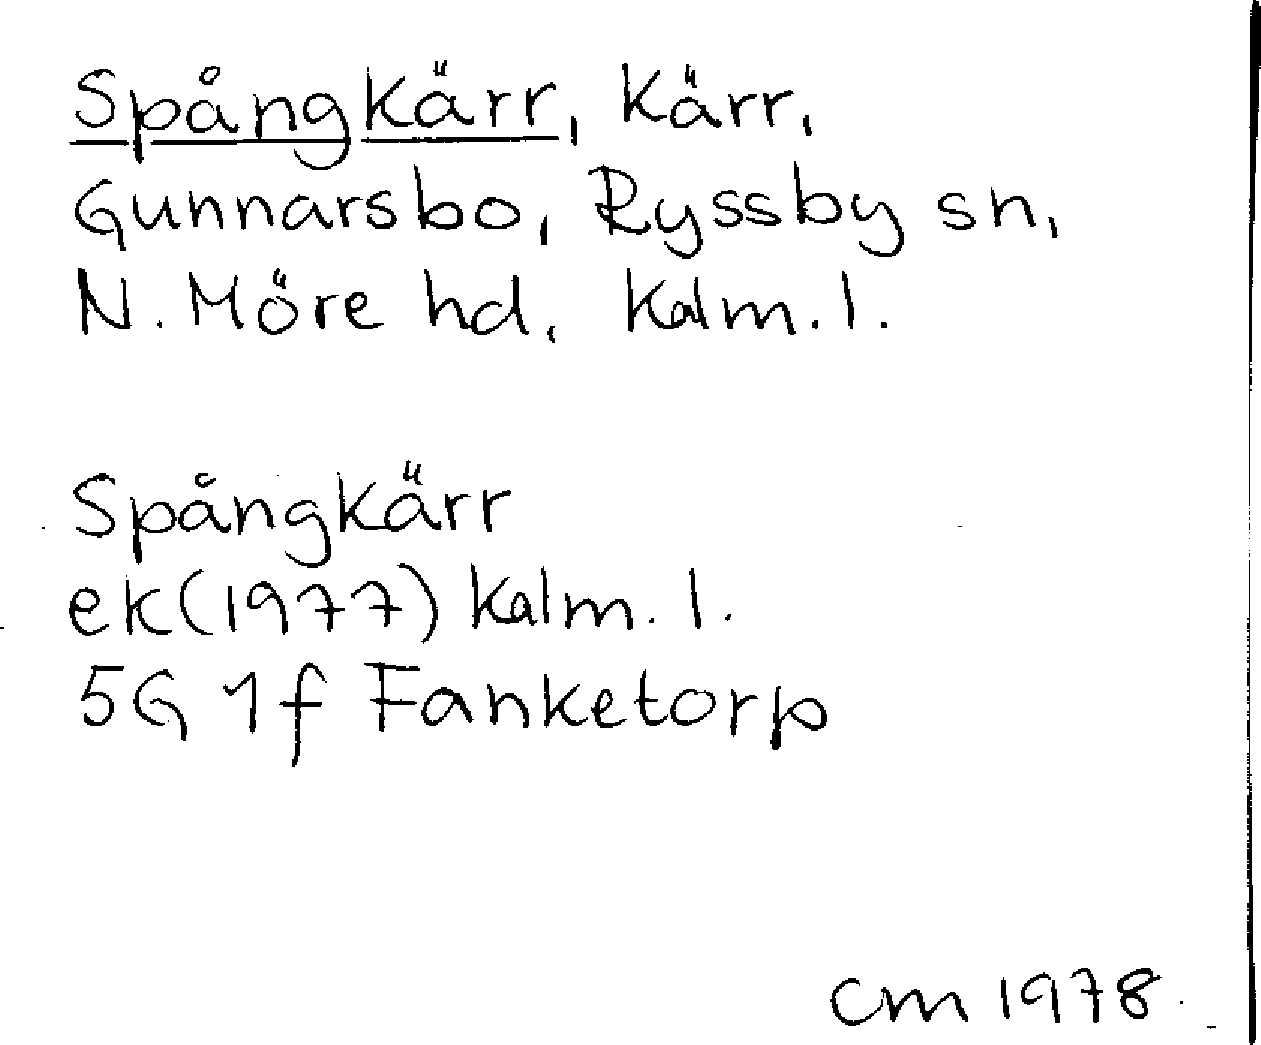 Spångkärr, kärr,
Gunnarsbo, Ryssby sn,
N. Möre hd, Kalm. l.
Spångkärr
ek (1977) Kalm. l.
5G 1f Fanketorp
CM 1978.